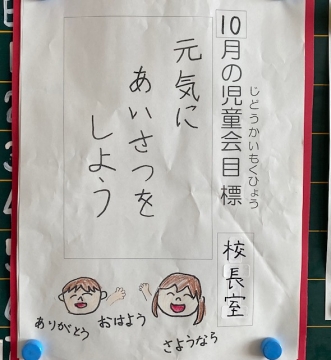 10月の児童会目標
じどうかいもくひょう
校長室
元気に
あいさつを
しよう
ありがとう
おはよう
さようなら